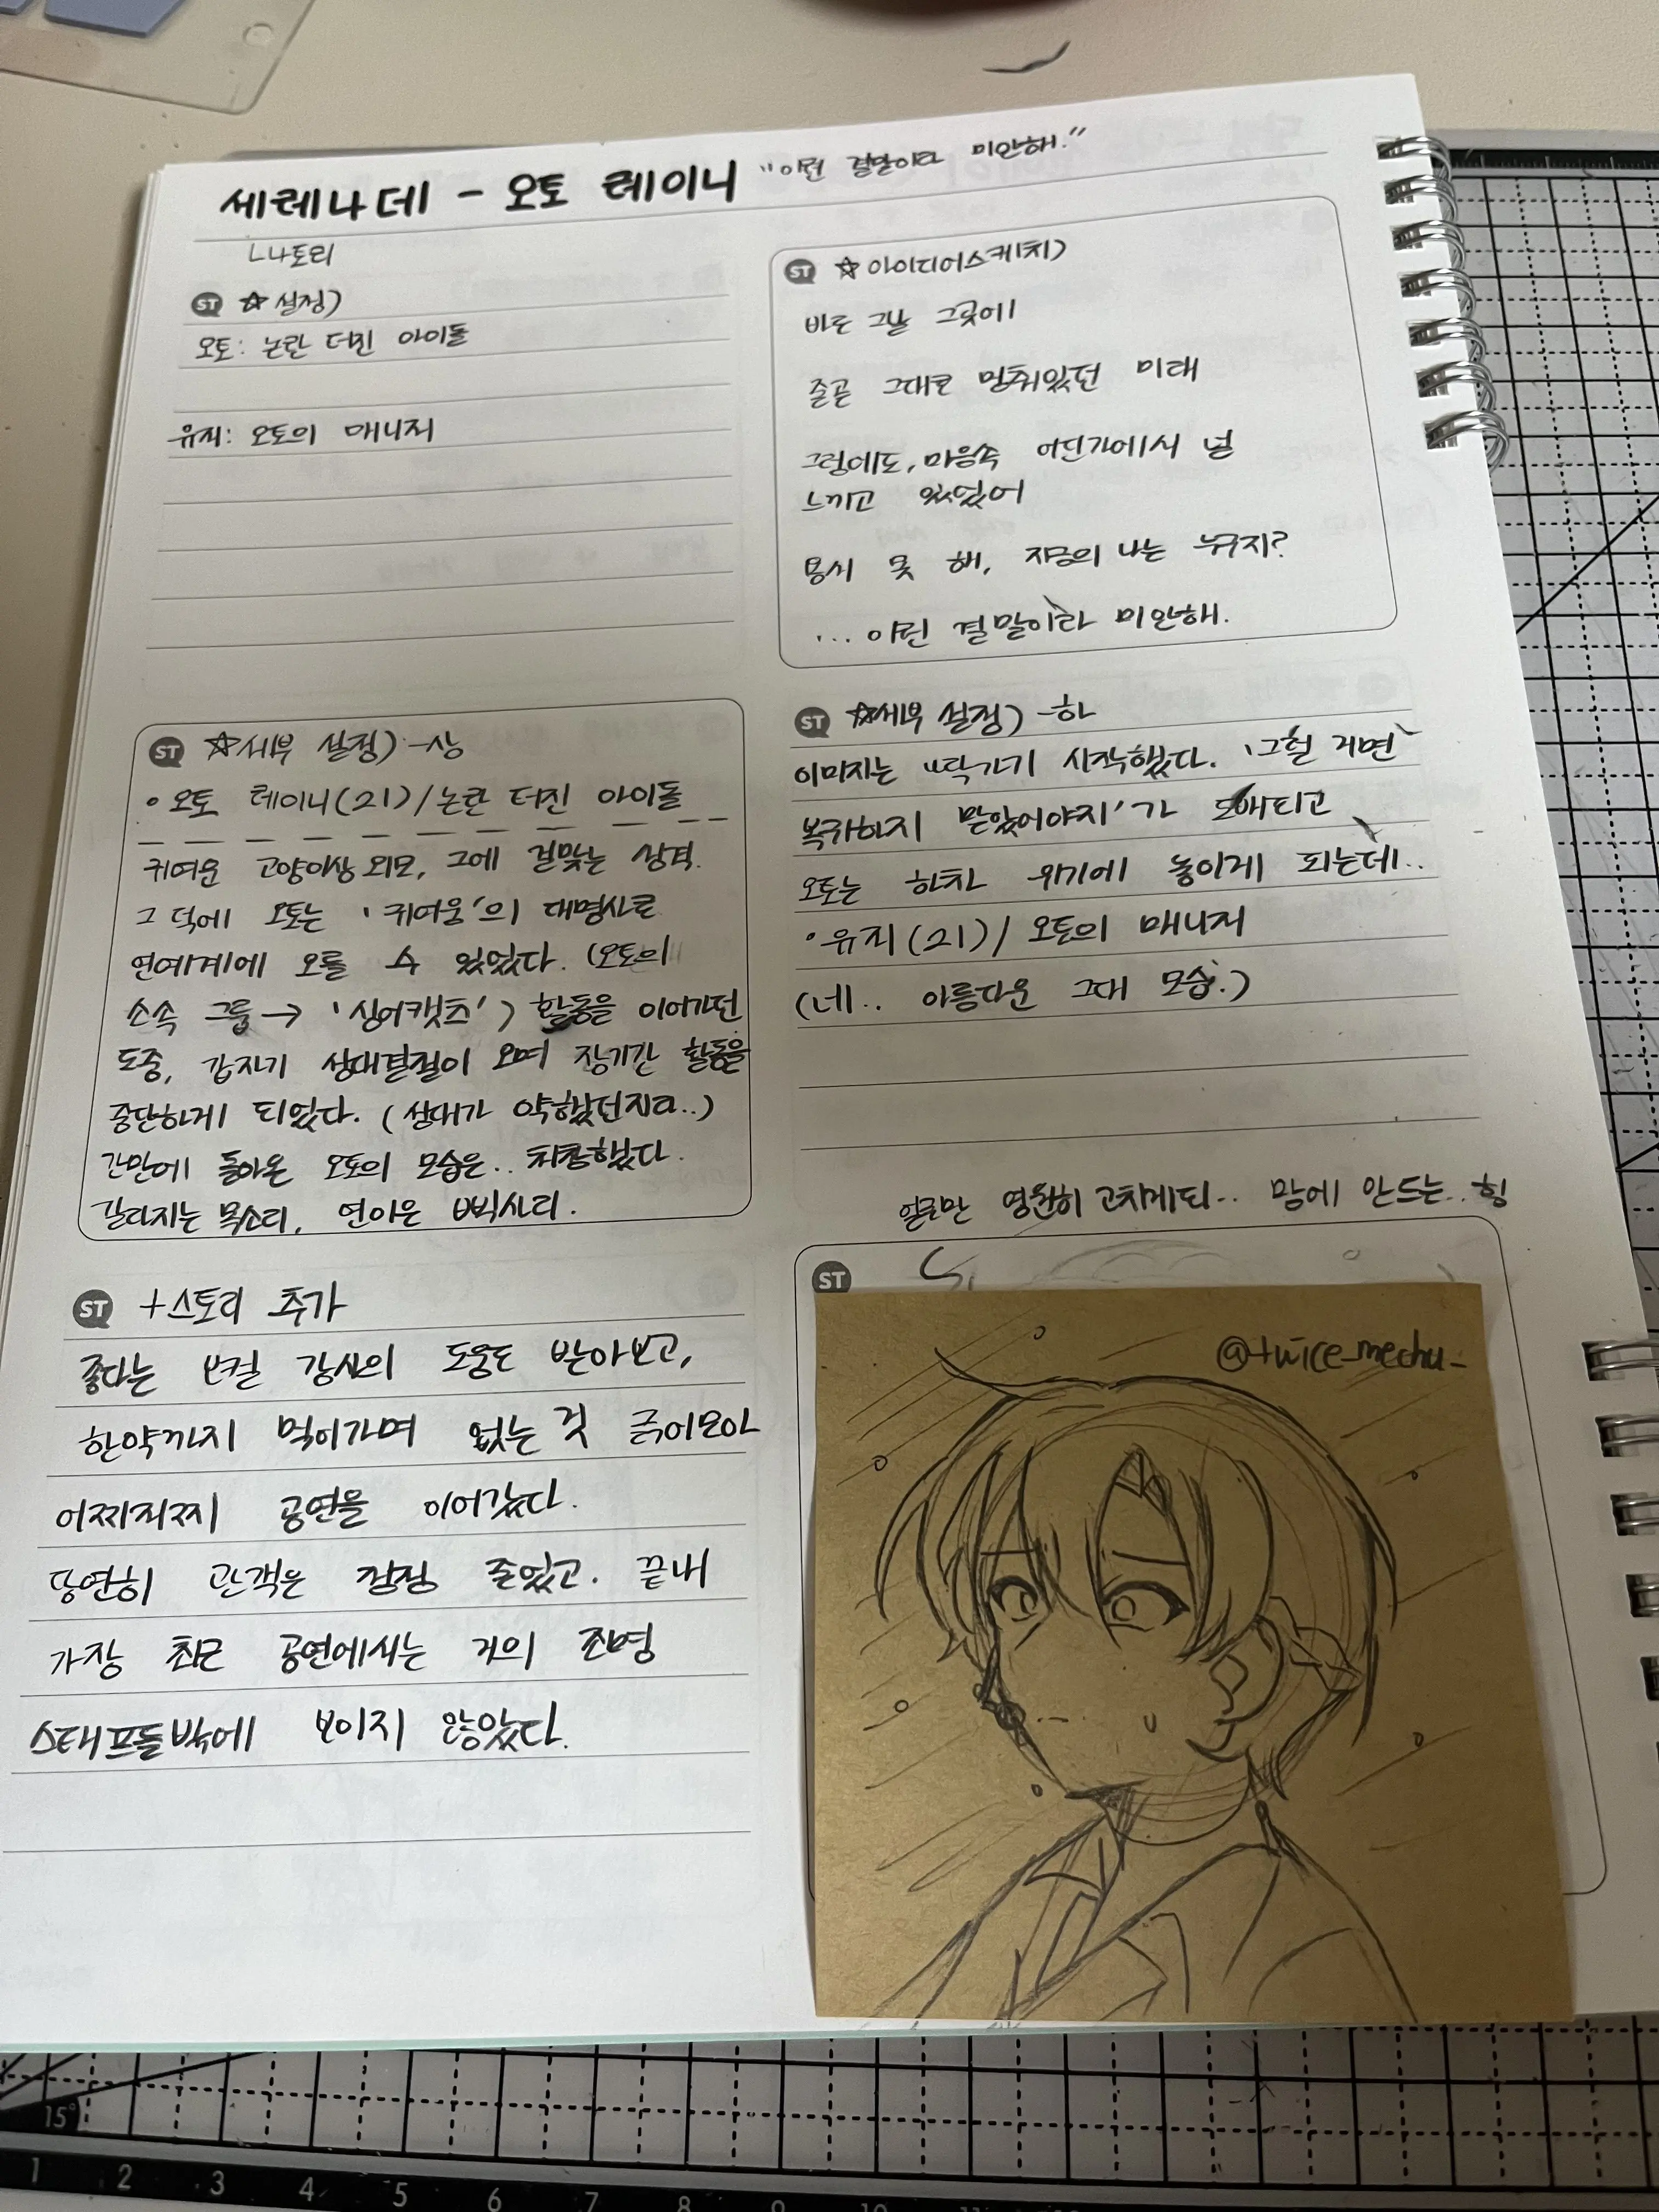 세레나데 - 오토 레이니 "이런 결말이라 미안해."
ㄴ나토리
ST ☆설정)
오토: 논란 터진 아이돌
유지: 오토의 매니저
ST ☆아이디어스케치)
바로 그날 그곳에
줄곧 그대로 멈춰있던 미래
그럼에도, 마음속 어딘가에서 널
느끼고 있었어
용서 못 해, 지금의 나는 누구지?
...이런 결말이라 미안해.
ST ☆세부 설정) -상
• 오토 레이니(21)/논란 터진 아이돌
귀여운 고양이상 외모, 그에 걸맞는 성격.
그 덕에 오토는 '귀여움'의 대명사로
연예계에 오를 수 있었다. (오토의
소속 그룹→ '싱어캣츠') 활동을 이어가던
도중, 갑자기 성대결절이 오며 장기간 활동을
중단하게 되었다. (성대가 약했던지라..)
간만에 돌아온 오토의 모습은.. 처참했다.
갈라지는 목소리, 연이은 삑사리.
ST +스토리 추가
좋다는 보컬 강사의 도움도 받아보고,
한약까지 먹어가며 없는 것 긁어모아
어찌저찌 공연을 이어갔다.
당연히 관객은 점점 줄었고. 끝내
가장 최근 공연에서는 거의 조명
스태프들밖에 보이지 않았다.
ST ☆세부 설정) -하
이미지는 깎기기 시작했다. '그럴 거면
복귀하지 말았어야지'가 도배되고
오토는 하차 위기에 놓이게 되는데..
•유지(21)/ 오토의 매니저
(네.. 아름다운 그대 모습.)
얼굴만 영원히 고치게되.. 맘에 안드는.. 힝
ST
@twice_mechu_
15°
1 2 3 4 5 6 7 8 9 10 11